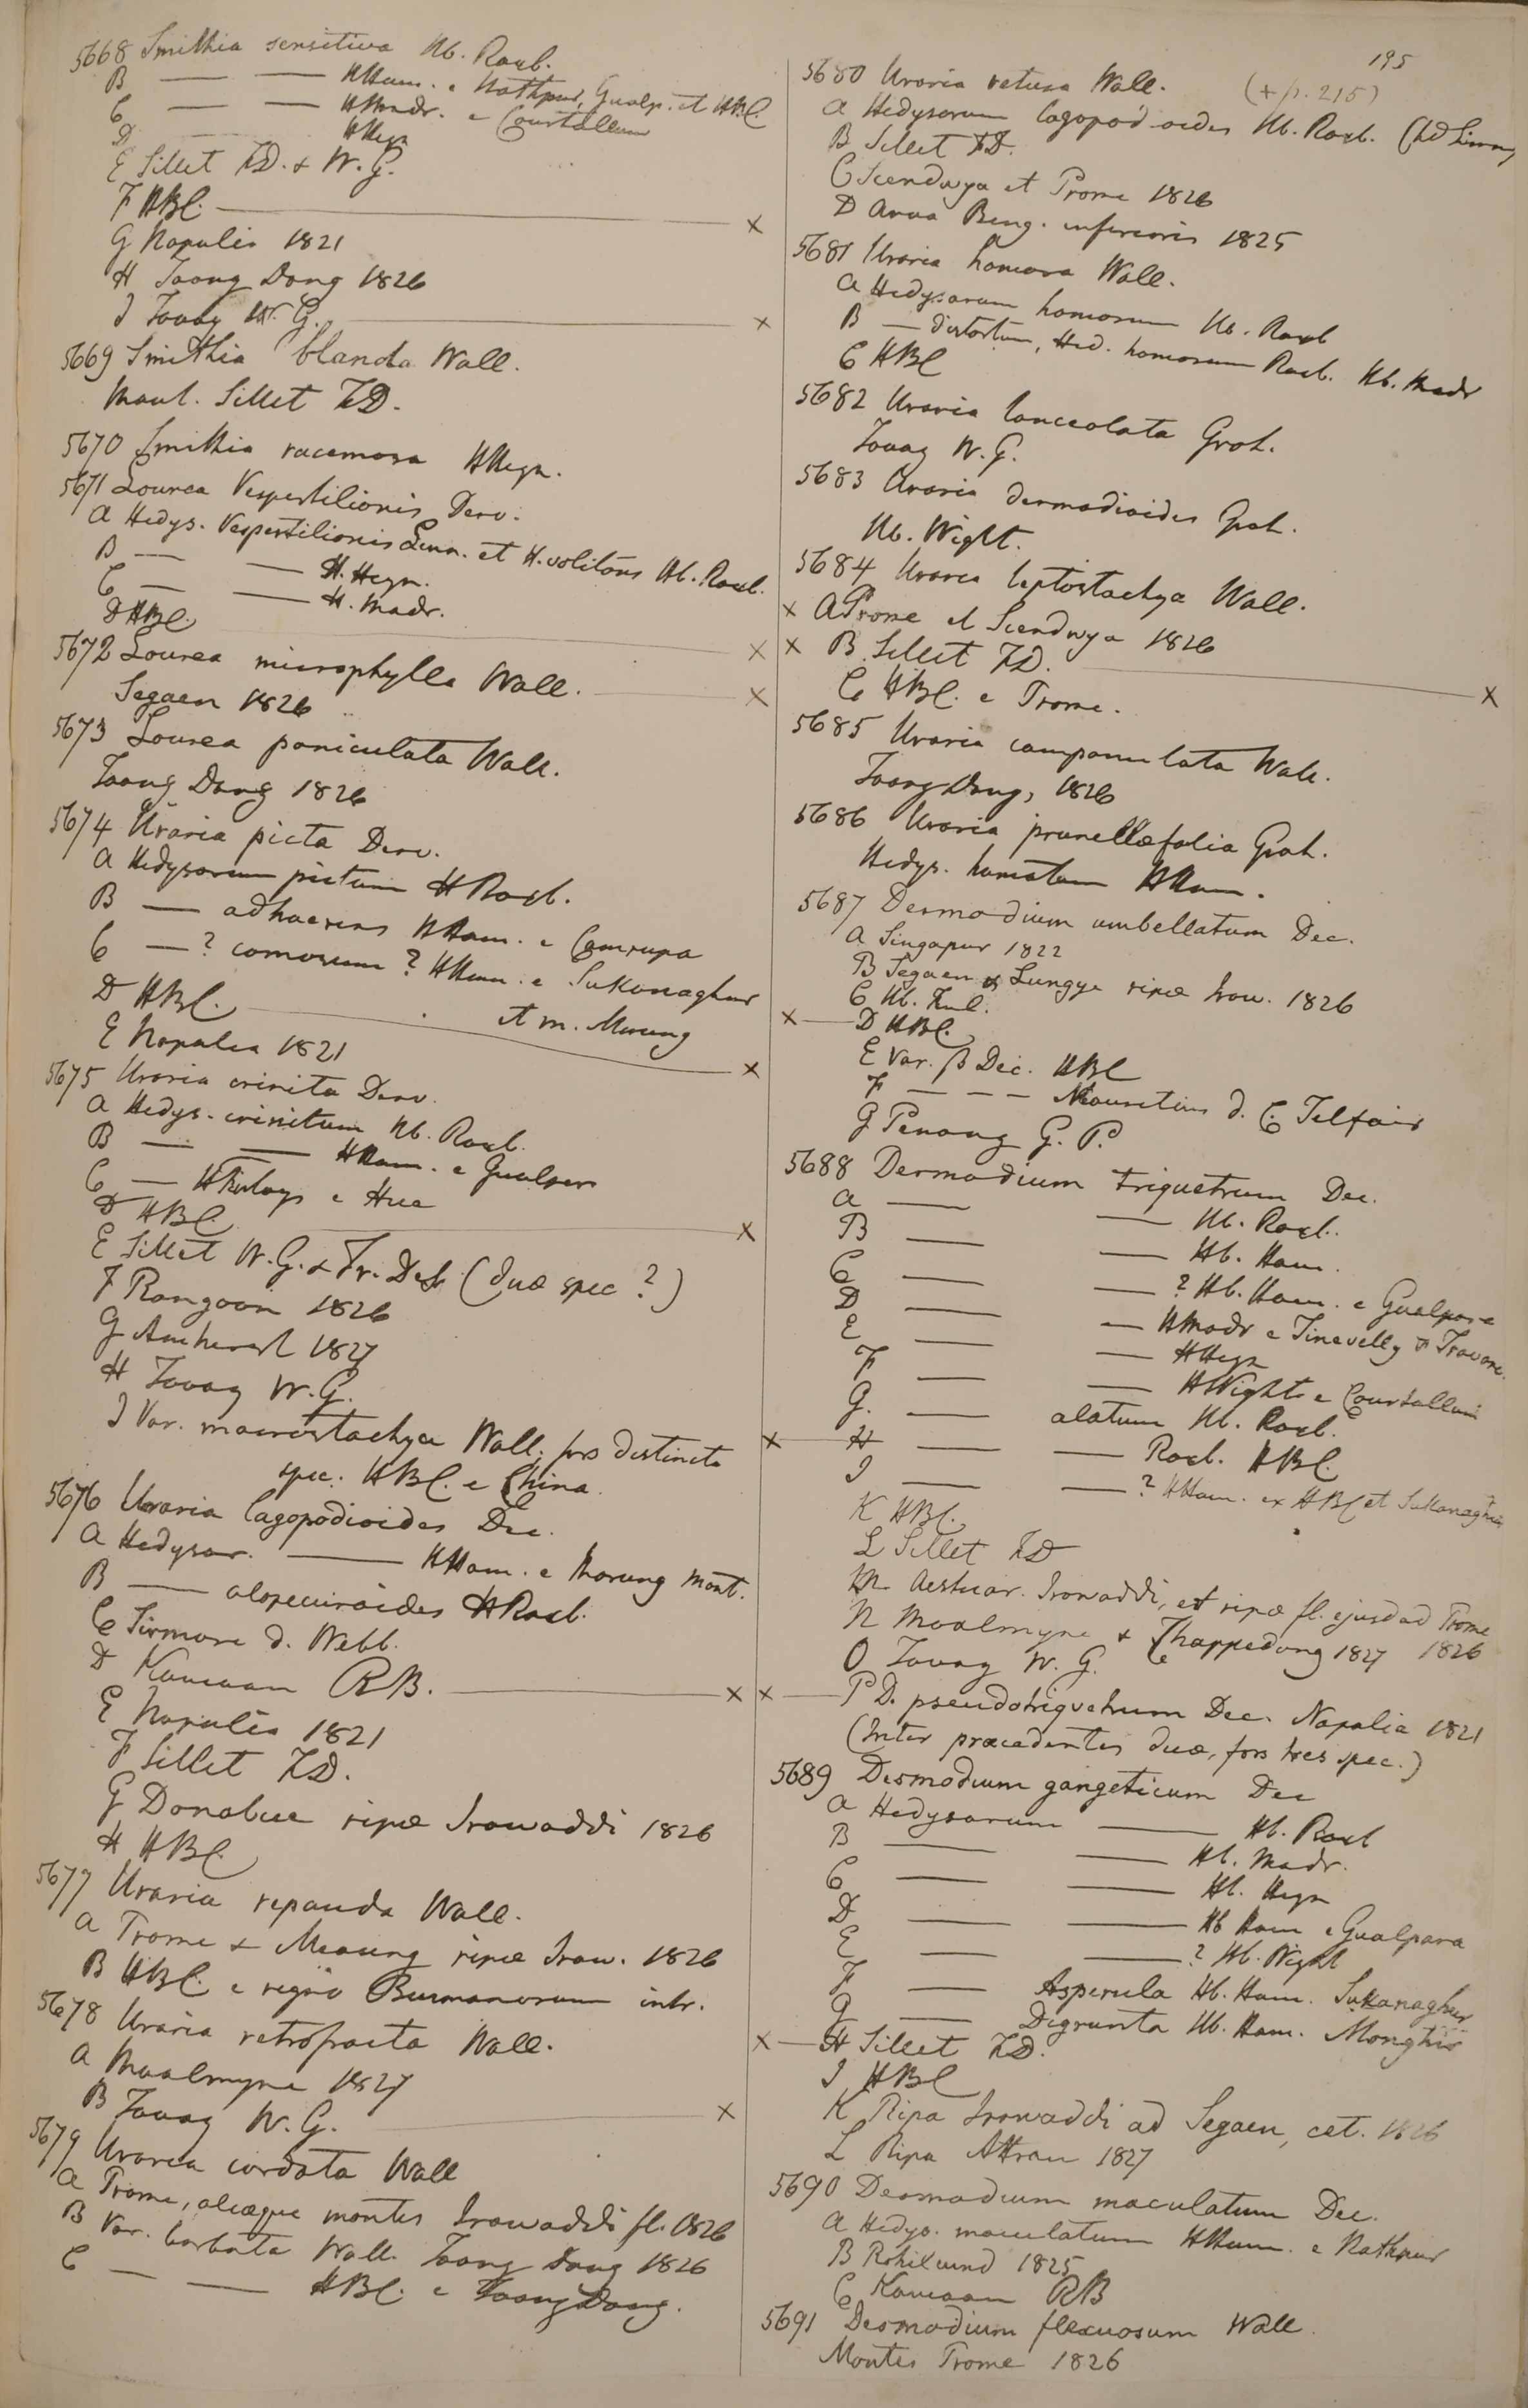 195
5668 Smithia sensitiva Hb. Roxb.
B — — HHam. e Nathpur, Gualp. et HBC.
C — — HMadr. e Courtallum
D — HHeyn
E Sillet FD. & W. G.
F HBC — x
G Napalia 1821
H Taong Dong 1826
I Tavoy W. G. — x
5669 Smithia blanda Wall.
Mont. Sillet FD.
5670 Smithia racemosa HHeyn.
5671 Lourea Vespertilionis Desv.
a Hedys. Vespertilionis Linn. et H. volitans Hb. Roxb.
B — — H. Heyn.
C — — H. Madr.
D HBC. — x
5672 Lourea microphylla Wall. — x
Segaen 1826
5673 Lourea paniculata Wall.
Taong Dong 1826
5674 Uraria picta Desv.
a Hedysarum pictum HRoxb.
B — adhaerens HHam. e Camrupa
C — ? comosum ? HHam. e Sukanaghur
et m. Morung
D HBC. — x
E Napalia 1821
5675 Uraria crinita Desv.
a Hedys. crinitum Hb. Roxb.
B — — HHam. e Gualpara
C — HFinlays e Hue
D HBC — x
E Sillet W. G. & Fr. DeS. (duæ spec ?)
F Rangoon 1826
G Amherst 1827
H Tavoy W. G.
I Var. macrostachya Wall. fors distincta
spec. HBC. e China
5676 Uraria lagopodioides Dec.
a Hedysar. — HHam. e Morung Mont.
B — alopecuroides HRoxb.
C Sirmore d. Webb.
D Kamaon RB. — x
E Napalia 1821
F Sillet FD.
G Donabue ripæ Irawaddi 1826
H HBC
5677 Uraria repanda Wall.
a Prome & Meaung ripæ Iraw. 1826
B HBC. e regno Burmanorum intr.
5678 Uraria retrofracta Wall.
a Moalmyne 1827
B Tavoy W. G. — x
5679 Uraria cordata Wall
a Prome, aliæque montes Irawaddi fl. 1826
B Var. barbata Wall. Taong Dong 1826
C — — HBC. e Taong Dong.
5680 Uraria retusa Wall. (+ p. 215)
a Hedysarum lagopodioides Hb. Roxb. (hd Linn)
B Sillet FD.
C Seendwya et Prome 1826
D Arva Beng. inferioris 1825
5681 Uraria hamosa Wall.
a Hedysarum hamosum Hb. Roxb
B — distortum, Hed. hamosum Roxb. Hb. Madr
C HBC
5682 Uraria lanceolata Grah.
Tavoy W. G.
5683 Uraria desmodioides Grah.
Hb. Wight.
5684 Uraria leptostachya Wall.
x a Prome et Seendwya 1826
x B Sillet FD. — x
C HBC. e Prome.
5685 Uraria campanulata Wall.
Taong Dong, 1826
5686 Uraria prunellæfolia Grah.
Hedys. hamatum HHam.
5687 Desmodium umbellatum Dec.
a Singapur 1822
B Segaen & Lungye ripæ Iraw. 1826
C Hb. Finl.
x — D HBC
E Var. β Dec. HBC
F — — — Mauritius d. C. Telfair
G Penang G. P.
5688 Desmodium triquetrum Dec.
a — — Hb. Roxb.
B — — Hb. Ham.
C — — ? Hb. Ham. e Gualpara
D — — HMadr e Tinevelly & Travanc.
E — — HHeyn
F — — HWight e Courtallum
G. — alatum Hb. Roxb.
x — H — — Roxb. HBC
I — — ? HHam. ex HBC et Sukanaghur
K HBC.
L Sillet FD
M Aestuar. Irawaddi, et ripæ fl. ejusd ad Prome 1826
N Moalmyne & Chappedong 1827
O Tavoy W. G.
x — P D. pseudotriquetrum Dec. Napalia 1821
(Inter præcedentes duæ, fors tres spec.)
5689 Desmodium gangeticum Dec
a Hedysarum — Hb. Roxb
B — — Hb. Madr.
C — — Hb. Heyn
D — — Hb Ham e Gualpara
E — — ? Hb. Wight
F — Asperula Hb. Ham. Sukanaghur
G — Digrunta Hb. Ham. Monghir
x — H Sillet FD.
I HBC
K Ripa Irawaddi ad Segaen, cet. 1826
L Ripa Attran 1827
5690 Desmodium maculatum Dec.
a Hedys. maculatum HHam. e Nathpur
B Rohilcund 1825
C Kamaon RB
5691 Desmodium flexuosum Wall.
Montes Prome 1826